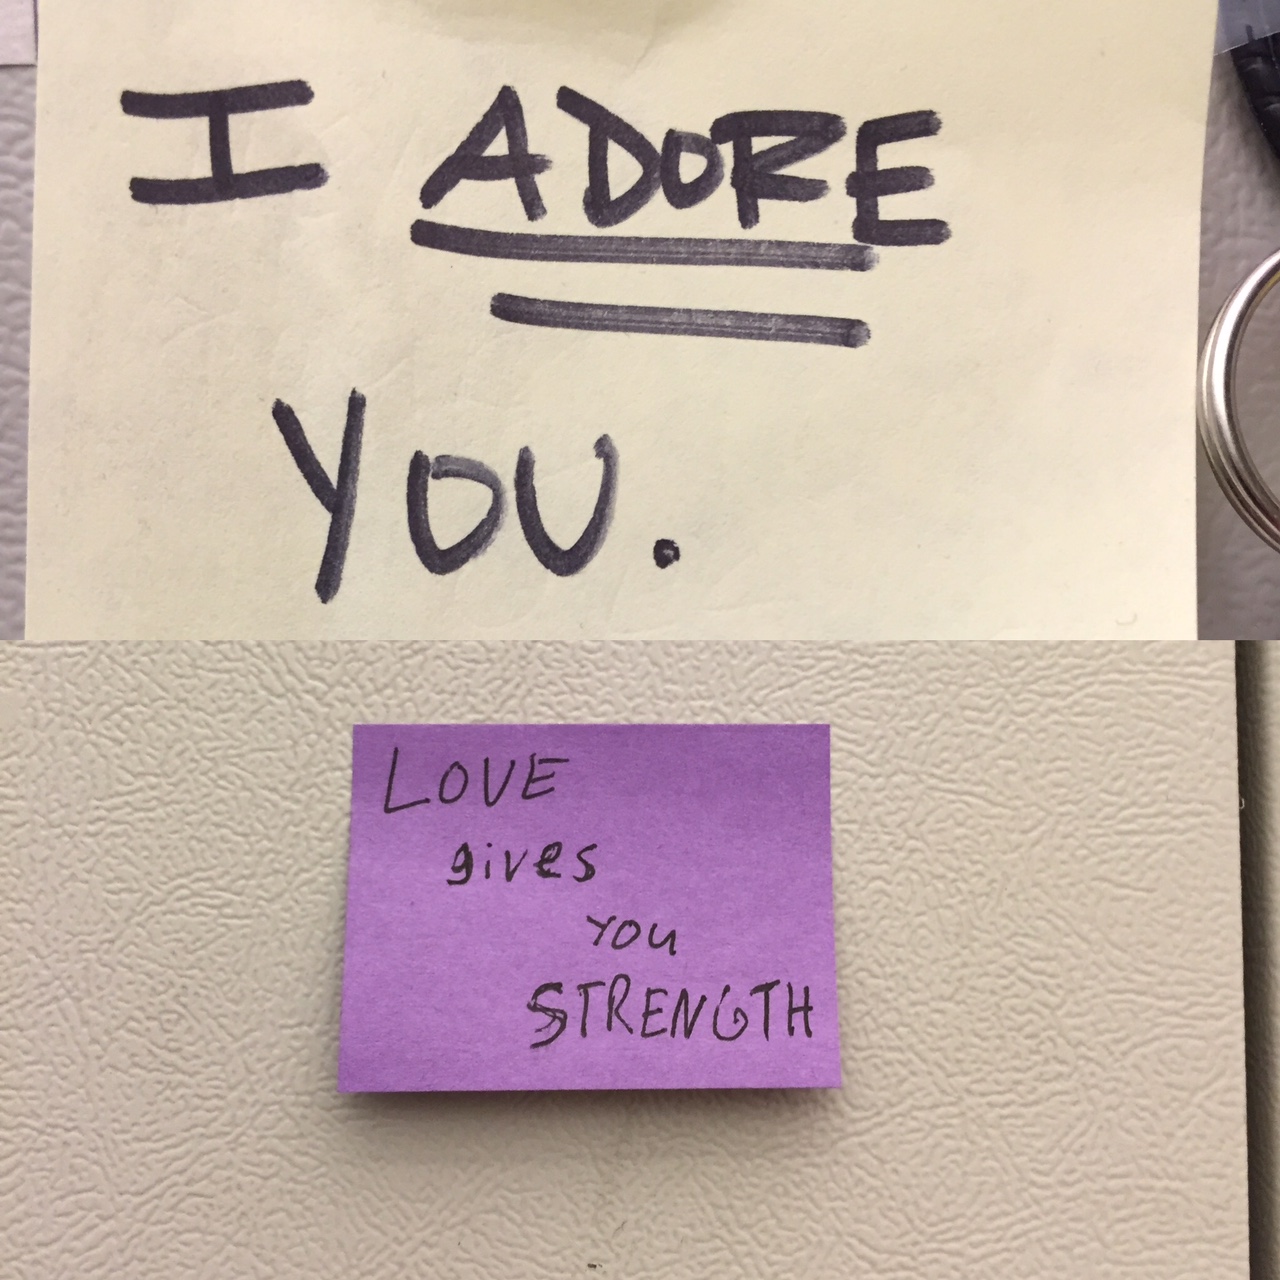 I ADORE
YOU.
LOVE
gives
YOU
STRENGTH